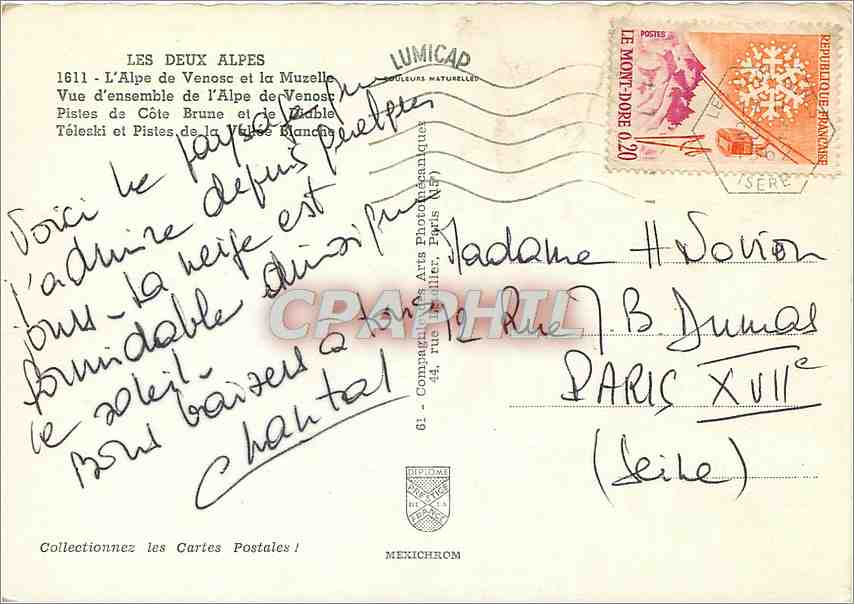 LES DEUX ALPES
1611 - L'Alpe de Venosc et la Muzelle
Vue d'ensemble de l'Alpe de Venosc
Pistes de Côte Brune et le Diable
Téleski et Pistes de la Vallée Blanche
LUMICAP
COULEURS NATURELLES
POSTES
LE MONT-DORE 0,20
REPUBLIQUE FRANÇAISE
ISÈRE
Voici le paysage que
j'admire depuis quelques
jours - La neige est
formidable ainsi que
le soleil -
Bons baisers à tous
Chantal
61 - Compagnie des Arts Photomécaniques
44, rue Letellier, Paris (15e)
CPAPHIL
Madame H
12 Rue J. B. Dumas
PARIS XVIIe
(Seine)
DIPLOME
PRESTIGE
DE LA
FRANCE
MEXICHROM
Collectionnez les Cartes Postales !